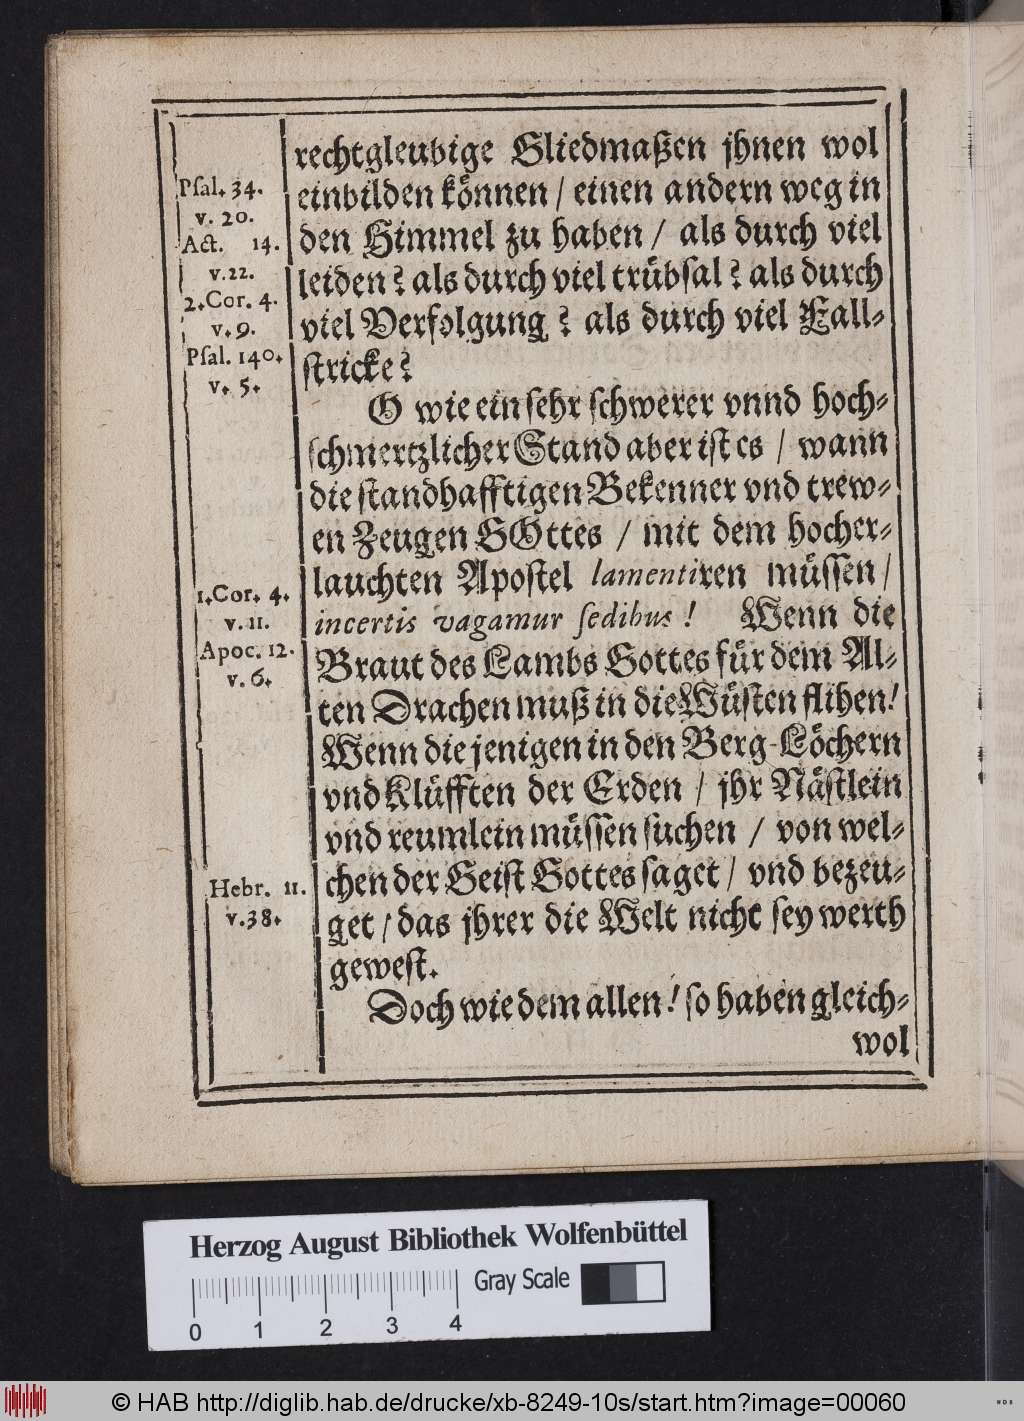 rechtgleubige Gliedmaßen jhnen wol
einbilden können / einen andern weg in
den Himmel zu haben / als durch viel
leiden? als durch viel trübsal? als durch
viel Verfolgung? als durch viel Fall-
stricke?
O wie ein sehr schwerer vnnd hoch-
schmertzlicher Stand aber ist es / wann
die standhafftigen Bekenner vnd trew-
en Zeugen GOttes / mit dem hocher-
lauchten Apostel lamentiren müssen /
incertis vagamur sedibus! Wenn die
Braut des Lambs Gottes für dem Al-
ten Drachen muß in die Wüsten flihen!
Wenn die jenigen in den Berg-Löchern
vnd Klüfften der Erden / jhr Nästlein
vnd reumlein müssen suchen / von wel-
chen der Geist Gottes saget / vnd bezeu-
get / das jhrer die Welt nicht sey werth
gewest.
Doch wie dem allen! so haben gleich-
wol
Psal. 34.
v. 20.
Act. 14.
v. 22.
2. Cor. 4.
v. 9.
Psal. 140.
v. 5.
1. Cor. 4.
v. 11.
Apoc. 12.
v. 6.
Hebr. 11.
v. 38.
Herzog August Bibliothek Wolfenbüttel
Gray Scale
0 1 2 3 4
© HAB http://diglib.hab.de/drucke/xb-8249-10s/start.htm?image=00060